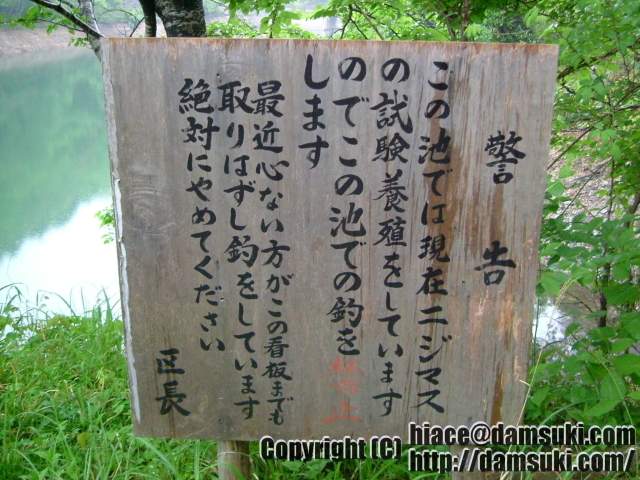 警告
この池では現在ニジマス
の試験養殖をしています
のでこの池での釣を
禁止
します
最近心ない方がこの看板までも
取りはずし釣をしています
絶対にやめてください
区長
Copyright (C) hiace@damsuki.com
http://damsuki.com/